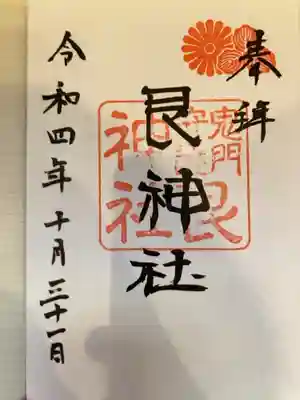 奉拝
艮神社
鬼門
守護
艮
神社
令和四年十月三十一日